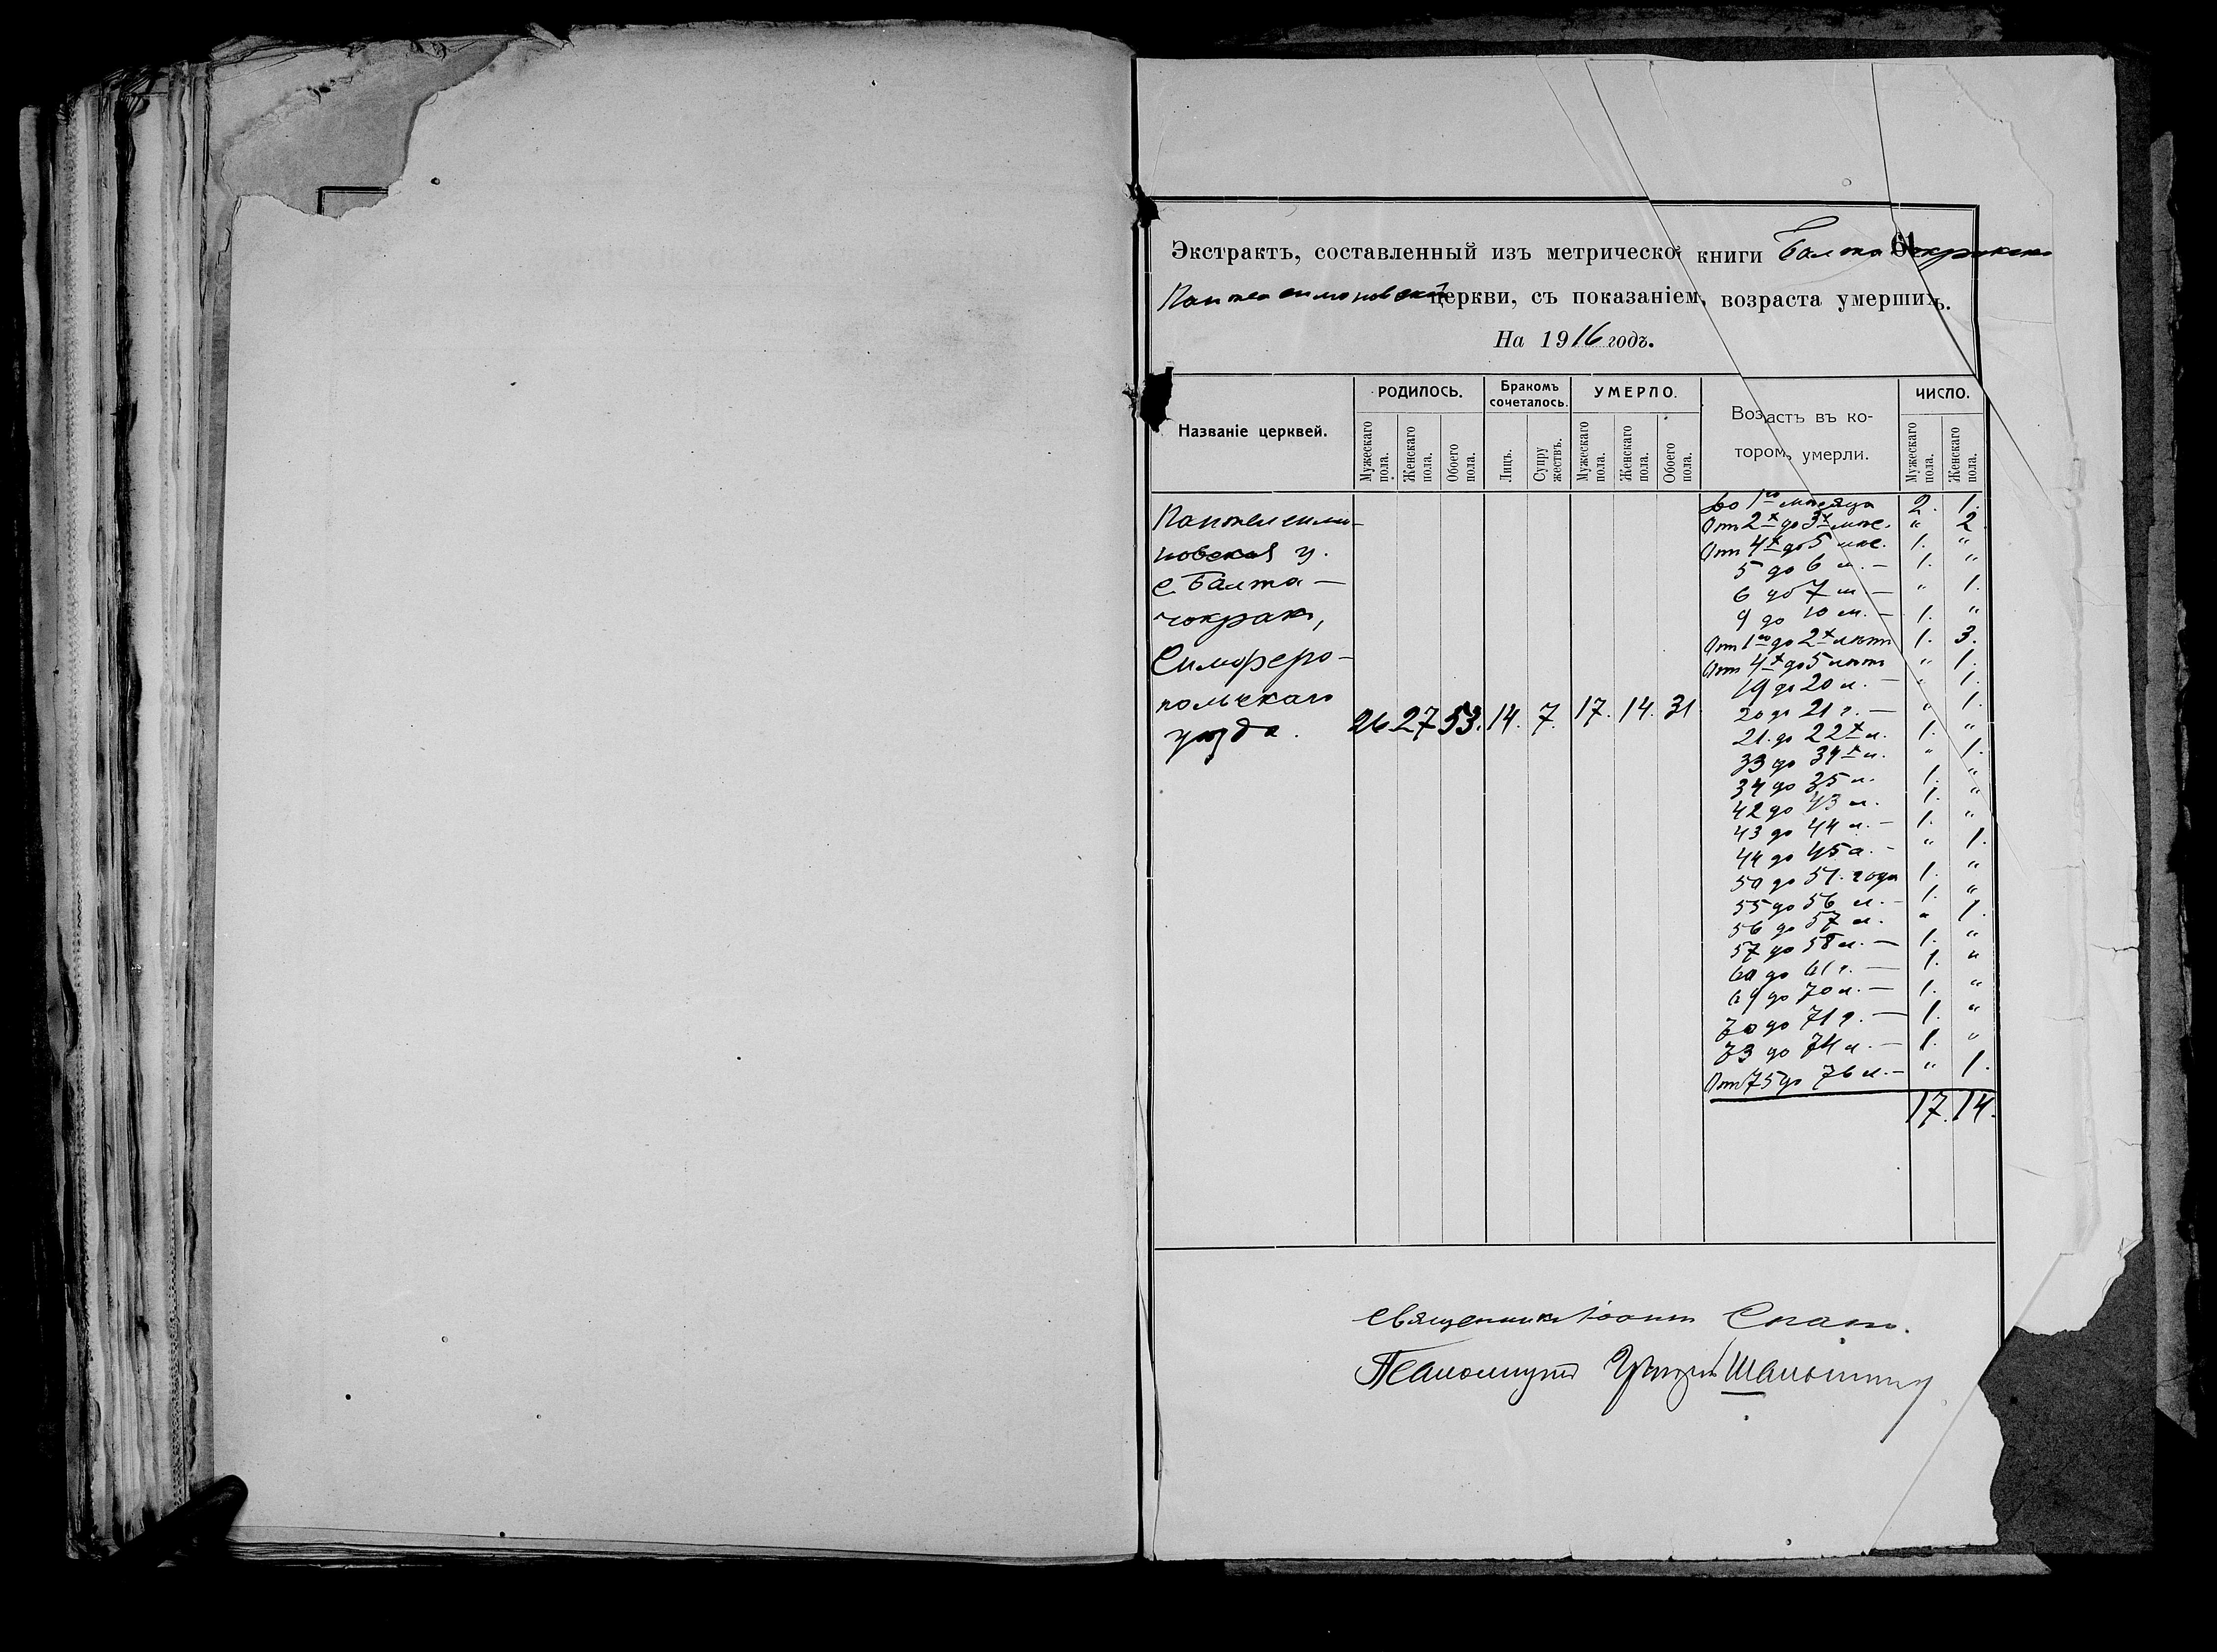 61
Экстрактъ, составленный изъ метрической книги Балта Чокракской
Пантелеимоновской церкви, съ показаніемъ возраста умершихъ.
На 1916 годъ.
Названіе церквей.
РОДИЛОСЬ.
Мужескаго пола.
Женскаго пола.
Обоего пола.
Бракомъ сочеталось.
Лицъ.
Супружествъ.
УМЕРЛО.
Мужескаго пола.
Женскаго пола.
Обоего пола.
Возрастъ въ которомъ умерли.
ЧИСЛО.
Мужескаго пола.
Женскаго пола.
Пантелеимо-
новская у.
с. Балта-
чокракъ,
Симферо-
польскаго
уѣзда.
26. 27 53. 14. 7. 17. 14. 31
До 1го мѣсяца 2. 1.
Отъ 2х до 3х мѣс. " 2
Отъ 4х до 5 мѣс. 1. "
5 до 6 м. — 1. "
6 до 7 м — " 1.
9 до 10 м. — 1. "
Отъ 1го до 2х лѣтъ 1. 3.
Отъ 4х до 5 лѣтъ " 1.
19 до 20 л. — " 1.
20 до 21 г. — " 1.
21. до 22х л. 1. "
33 до 34х л. " 1.
34 до 35 л. 1. "
42 до 43 л. 1. "
43 до 44 л. — 1. "
44 до 45 л. — " 1.
50 до 51. года 1. "
55 до 56 л. — 1. "
56 до 57 л. " 1.
57 до 58 л. — 1. "
60 до 61 г. — 1. "
69 до 70 л. — 1. "
70 до 71 г. — 1. "
73 до 74 л. — 1. "
Отъ 75 до 76 л. — " 1.
17. 14.
Священникъ Іоаннъ
Псаломщикъ